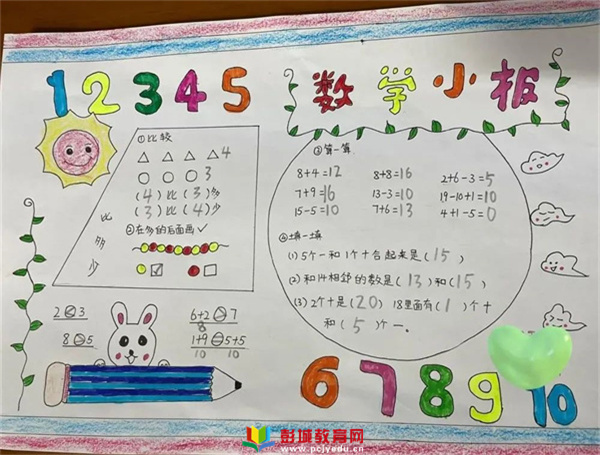 12345
数学小板
①比较
△ △ △ △ 4
○ ○ ○ 3
(4)比(3)多
(3)比(4)少
比
少
②在多的后面画✓
2○3
8○5
6+2○7
8
1+9○5+5
10 10
③算一算
8+4=12 8+8=16 2+6-3=5
7+9=16 13-3=10 19-10+1=10
15-5=10 7+6=13 4+1-5=0
④填一填
(1) 5个一和1个十合起来是(15)
(2)和14相邻的数是(13)和(15)
(3) 2个十是(20) 18里面有(1)个十
和(5)个一.
6 7 8 9 10
彭城教育网
www.pcjyedu.cn